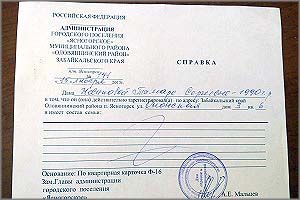 РОССИЙСКАЯ ФЕДЕРАЦИЯ
АДМИНИСТРАЦИЯ
ГОРОДСКОГО ПОСЕЛЕНИЯ
«ЯСНОГОРСКОЕ»
МУНИЦИПАЛЬНОГО РАЙОНА
«ОЛОВЯННИНСКИЙ РАЙОН»
ЗАБАЙКАЛЬСКОГО КРАЯ
СПРАВКА
п/т. Ясногорск
Дана
в том, что он (она) действительно зарегистрирован(а) по адресу: Забайкальский край
Оловяннинского района п. Ясногорск ул. дом 3 кв. 6
и имеет состав семьи:
Основание: По квартирная карточка Ф-16
Зам.Главы администрации
городского поселения
«Ясногорское»
А.Е. Мальцев